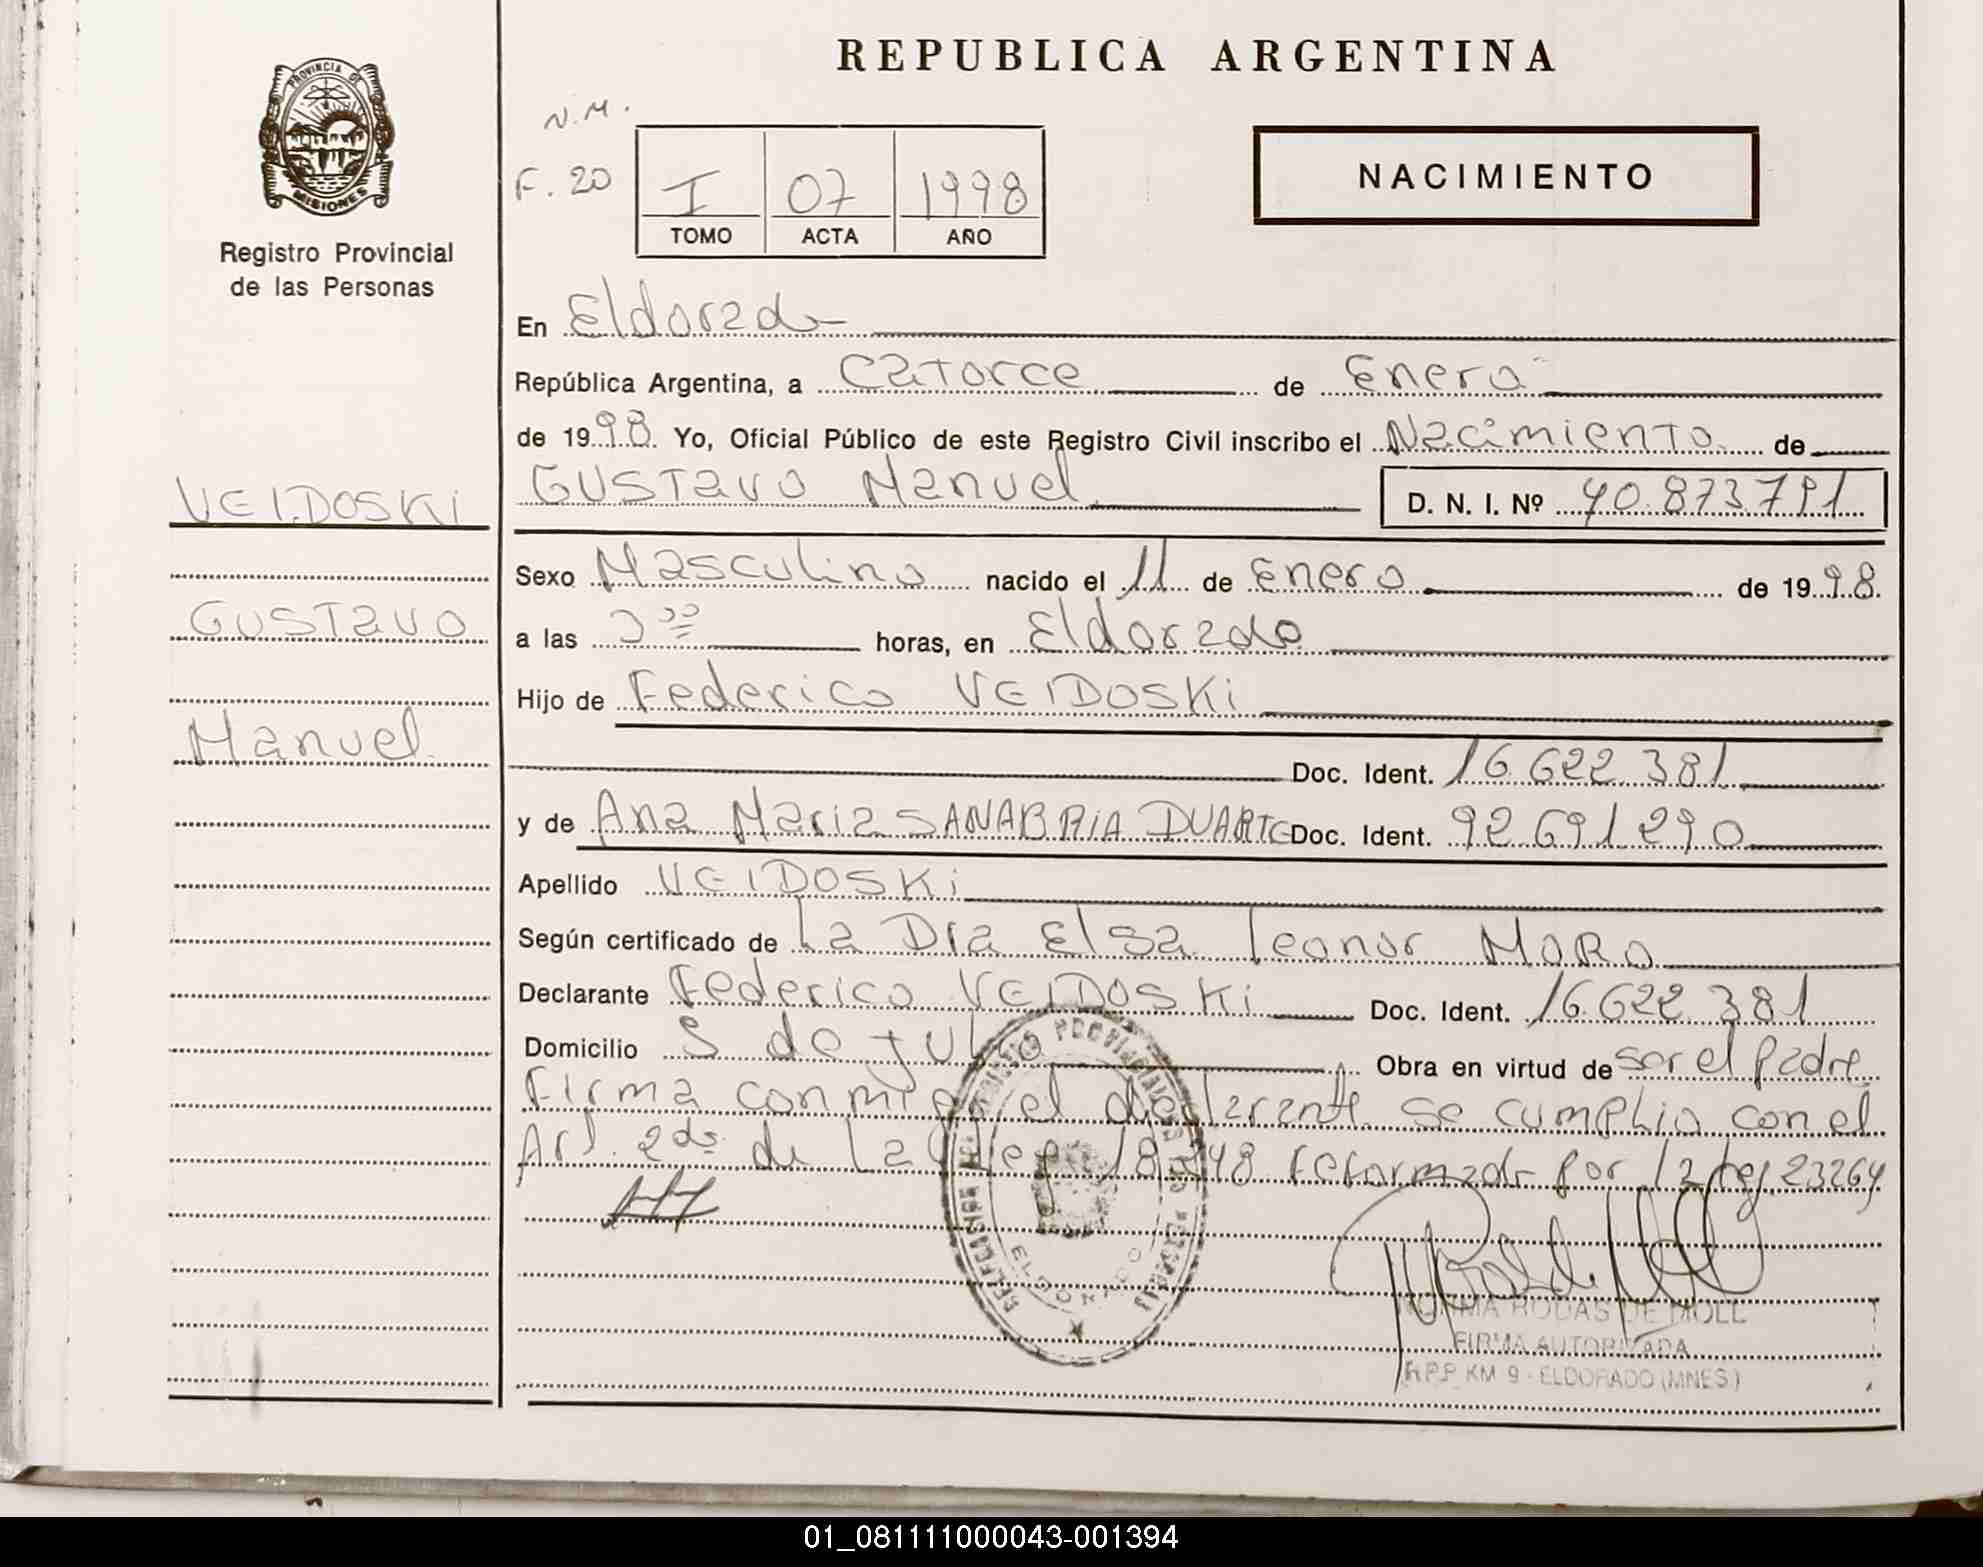 REPUBLICA ARGENTINA
PROVINCIA DE
MISIONES
Registro Provincial
de las Personas
N.M.
F. 20
I 07 1998
TOMO ACTA AÑO
NACIMIENTO
En Eldorado
República Argentina, a Catorce de Enero
de 1998. Yo, Oficial Público de este Registro Civil inscribo el Nacimiento de
Gustavo Manuel D. N. I. Nº 40.873.791
VEIDOSKi
Gustavo
Manuel
Sexo Masculino nacido el 11 de Enero de 1998.
a las 3⁰⁰ horas, en Eldorado
Hijo de Federico VEIDOSKi
Doc. Ident. 16.622.381
y de Ana Maria SANABRIA DUARTE Doc. Ident. 92.691.290
Apellido VEIDOSKi
Según certificado de La Dra Elsa Leonor MORO
Declarante Federico VEIDOSKi Doc. Ident. 16.622.381
Domicilio 9 de Julio Obra en virtud de ser el padre
Firma conmigo el declarante se cumplio con el
Art. 2do de la Ley 18248 reformado por la Ley 23264
NORMA RODAS DE MOLL
FIRMA AUTORIZADA
R.P.P. KM 9 - ELDORADO (MNES.)
01_081111000043-001394